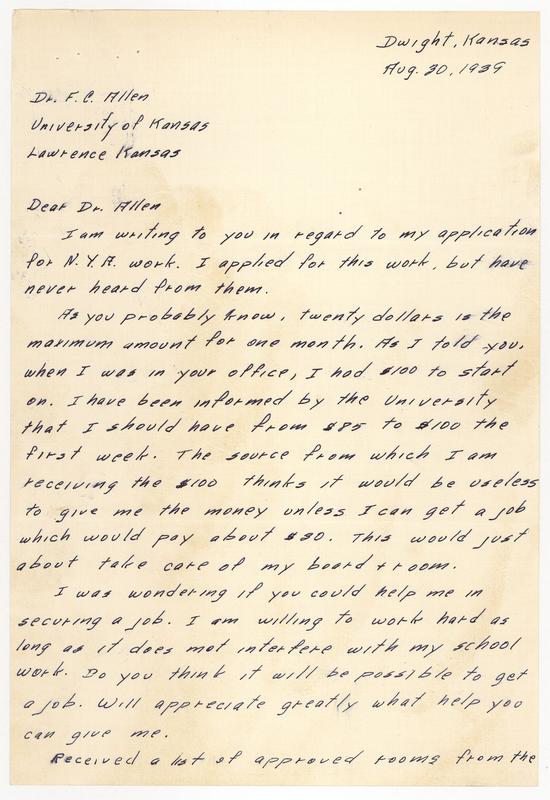 Dwight, Kansas
Aug. 30, 1939
Dr. F. C. Allen
University of Kansas
Lawrence Kansas
Dear Dr. Allen
I am writing to you in regard to my application
for N.Y.A. work. I applied for this work, but have
never heard from them.
As you probably know, twenty dollars is the
maximum amount for one month. As I told you,
when I was in your office, I had $100 to start
on. I have been informed by the University
that I should have from $85 to $100 the
first week. The source from which I am
receiving the $100 thinks it would be useless
to give me the money unless I can get a job
which would pay about $30. This would just
about take care of my board + room.
I was wondering if you could help me in
securing a job. I am willing to work hard as
long as it does not interfere with my school
work. Do you think it will be possible to get
a job. Will appreciate greatly what help you
can give me.
Received a list of approved rooms from the